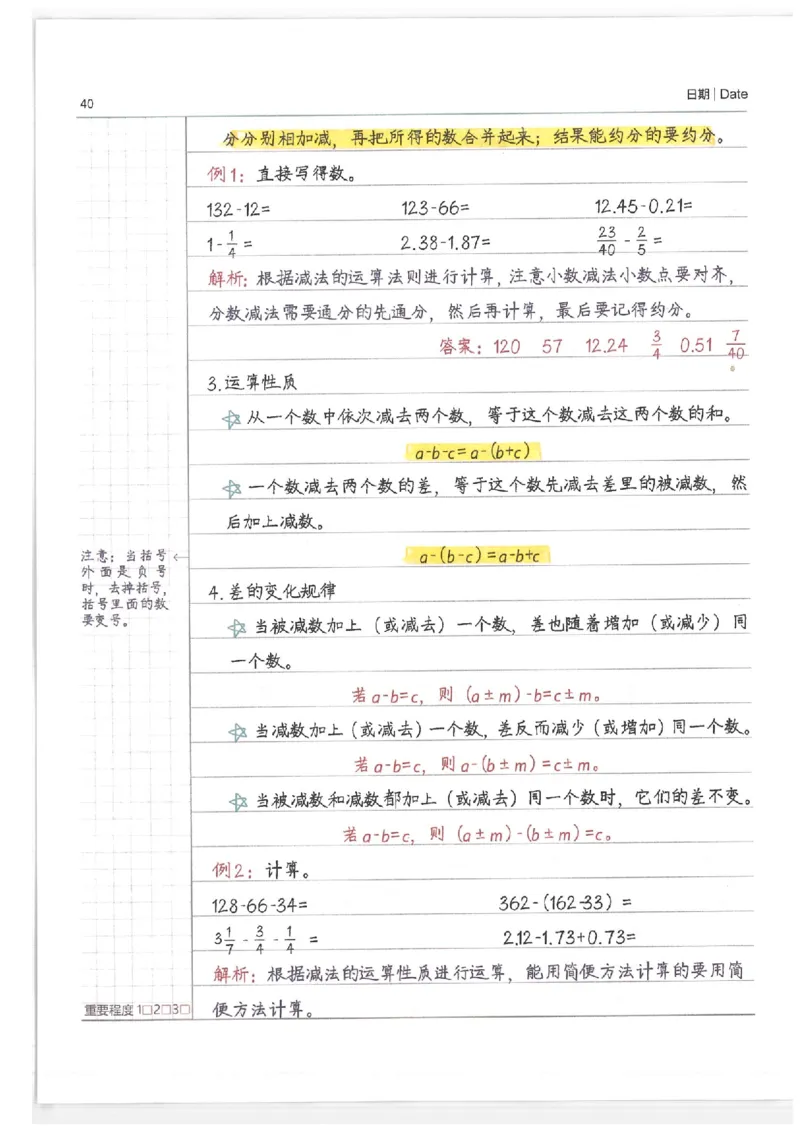 40
日期 | Date
分分别相加减，再把所得的数合并起来；结果能约分的要约分。
例1：直接写得数。
132-12= 123-66= 12.45-0.21=
1-1/4= 2.38-1.87= 23/40-2/5=
解析：根据减法的运算法则进行计算，注意小数减法小数点要对齐，
分数减法需要通分的先通分，然后再计算，最后要记得约分。
答案：120 57 12.24 3/4 0.51 7/40
。
3.运算性质
☆从一个数中依次减去两个数，等于这个数减去这两个数的和。
a-b-c=a-(b+c)
☆一个数减去两个数的差，等于这个数先减去差里的被减数，然
后加上减数。
a-(b-c)=a-b+c
注意：当括号←
外面是负号
时，去掉括号，
括号里面的数
要变号。
4.差的变化规律
☆当被减数加上（或减去）一个数，差也随着增加（或减少）同
一个数。
若a-b=c，则（a±m）-b=c±m。
☆当减数加上（或减去）一个数，差反而减少（或增加）同一个数。
若a-b=c，则a-（b±m）=c±m。
☆当被减数和减数都加上（或减去）同一个数时，它们的差不变。
若a-b=c，则（a±m）-（b±m）=c。
例2：计算。
128-66-34= 362-(162-33)=
3 1/7-3/4-1/4= 2.12-1.73+0.73=
解析：根据减法的运算性质进行运算，能用简便方法计算的要用简
便方法计算。
重要程度 1□2□3□